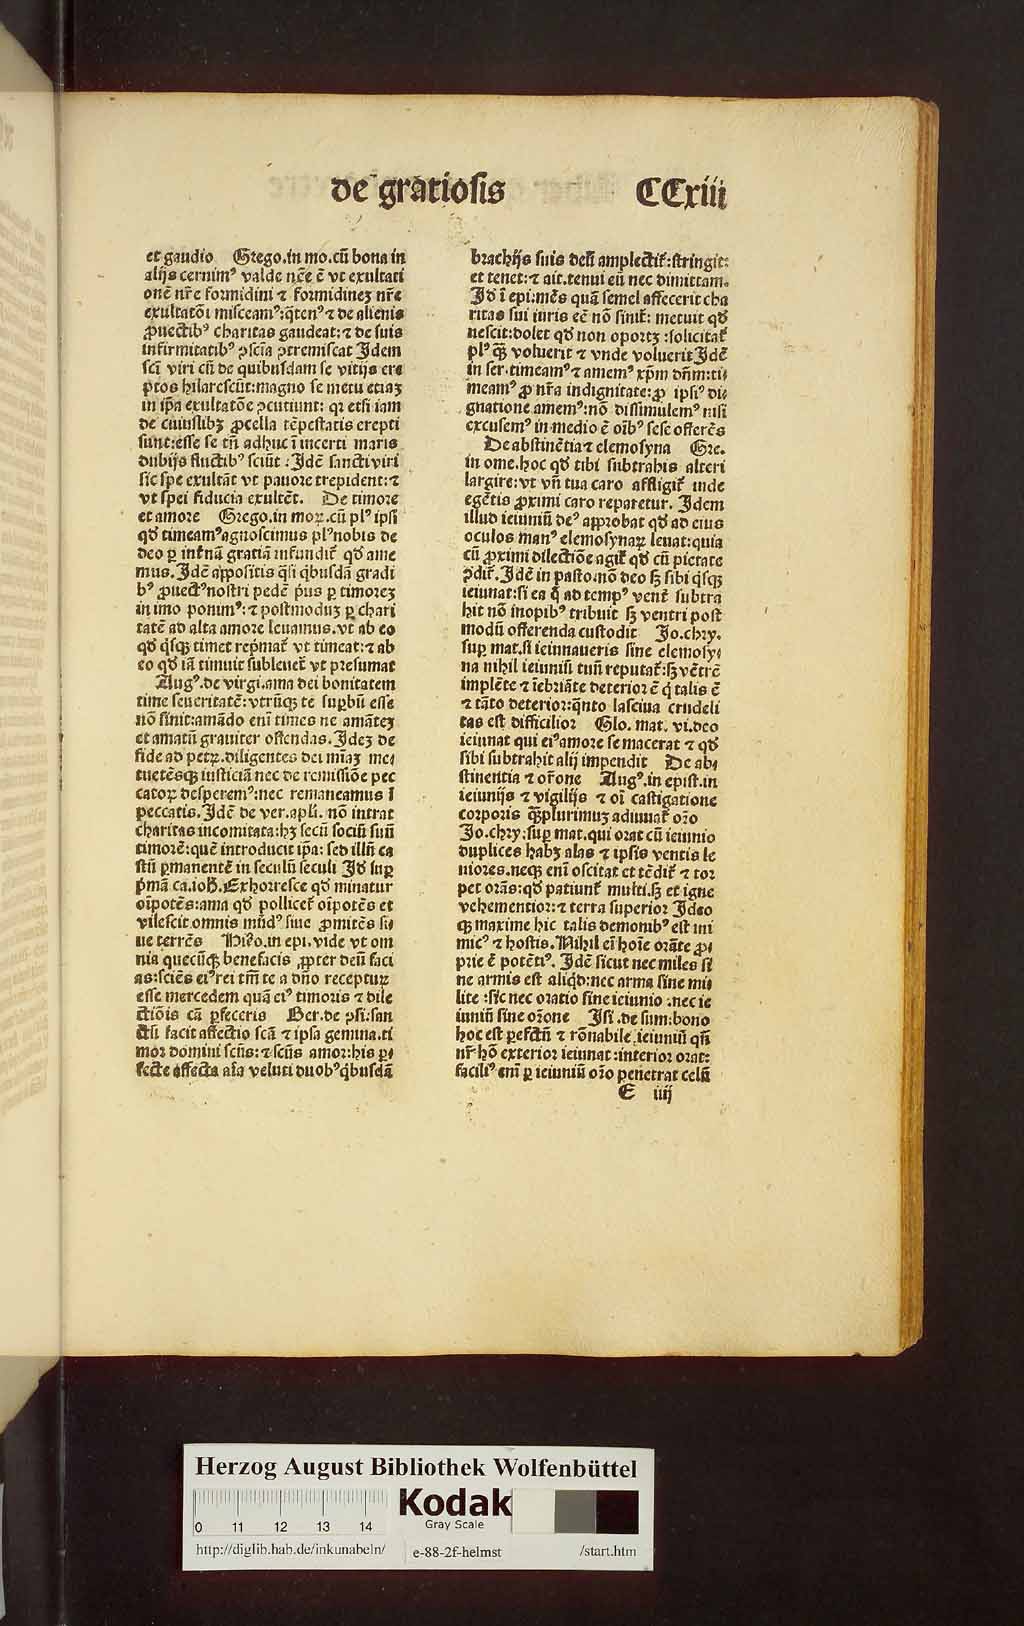 de gratiosis CCxiii
et gaudio Grego.in mo.cū bona in
alijs cernimꝰ valde nc̄e ē vt exultati
onē nr̄e formidini ⁊ formidineꝫ nr̄e
exultatōi misceamꝰ:q̄tenꝰ ⁊ de alienis
ꝓuectibꝰ charitas gaudeat:⁊ de suis
infirmitatibꝰ ꝯscīa ꝯtremiscat Idem
scī viri cū de quibusdam se vitijs ere
ptos hilarescūt:magno se metu etiaꝫ
in ip̄a exultatōe ꝯcutiunt: qꝛ etsi iam
de cuiuslibꝫ ꝓcella tēpestatis erepti
sunt:esse se tn̄ adhuc ī incerti maris
dubijs fluctibꝰ sciūt :Idē sancti viri
sic spe exultāt vt pauore trepident:⁊
vt spei fiducia exultēt. De timore
et amore Grego.in moꝝ.cū plꝰ ipsi
qd̄ timeamꝰagnoscimus plꝰnobis de
deo ꝑ int̄nā gratiā infundit̄ qd̄ ame
mus.Idē appositis q̄si q̄busdā gradi
bꝰ ꝓuectꝰnostri pedē p̄us ꝑ timoreꝫ
in imo ponimꝰ:⁊ postmoduꝫ ꝑ chari
tatē ad alta amore leuamus.vt ab eo
qd̄ q̄sqꝫ timet rep̄mat̄ vt timeat:⁊ ab
eo qd̄ iā timuit subleuet̄ vt presumat
Augꝰ.de virgi.ama dei bonitatem
time seueritatē:vtrūqꝫ te suꝑbū esse
nō sinit:amādo eni times ne amāteꝫ
et amatū grauiter offendas.Ideꝫ de
fide ad petꝝ.diligentes dei mīaꝫ me
tuetēsqꝫ iusticiā nec de remissiōe pec
catoꝝ desperemꝰ:nec remaneamus ī
peccatis.Idē de ver.apli. nō intrat
charitas incomitata:hꝫ secū sociū suū
timorē:quē introducit ip̄a: sed illū ca
stū ꝑmanentē in seculū seculi Id̄ suꝑ
p̄mā ca.ioh̄.Exhorresce qd̄ minatur
oīpotēs:ama qd̄ pollicet̄ oīpotēs et
vilescit omnis mūdꝰ siue ꝓmitēs si
ue terrēs Hiero.in epi.vide vt om
nia quecūqꝫ benefacis ꝓpter deū faci
as:sciēs eiꝰ rei tm̄ te a dn̄o recepturꝝ
esse mercedem quā eiꝰ timoris ⁊ dile
ctiōis cā ꝑfeceris Ber.de ꝯsi:san
ctū facit affectio scā ⁊ ipsa gemina.ti
mor domini scūs:⁊ scūs amor:his ꝑ
fecte affecta aīa veluti duobꝰq̄busdā
brachijs suis deū amplectit̄:stringit:
et tenet:⁊ ait.tenui eū nec dimittam.
Id̄ ī epi:mēs quā semel affecerit cha
ritas sui iuris eē nō sinit̄: metuit qd̄
nescit:dolet qd̄ non oportꝫ :solicitat̄
plꝰ q̄ꝫ voluerit ⁊ vnde voluerit Idē
in ser.timeamꝰ ⁊ amemꝰ xp̄m dn̄m:ti
meamꝰ ꝓ nr̄a indignitate:ꝓ ipsiꝰ di
gnatione amemꝰ:nō dissimulemꝰ nisi
excusemꝰ in medio ē oībꝰ sese offerēs
De abstinētia ⁊ elemosyna Gre.
in ome.hoc qd̄ tibi subtrahis alteri
largire:vt vn̄ tua caro affligit̄ inde
egētis ꝓximi caro reparetur. Idem
illud ieiuniū deꝰ approbat qd̄ ad eius
oculos manꝰ elemosynaꝝ leuat:quia
cū ꝓximi dilectiōe agit̄ qd̄ cū pietate
ꝯdit̄.Idē in pasto.nō deo sꝫ sibi q̄sqꝫ
ieiunat:si ea q̄ ad tempꝰ venē subtra
hit nō inopibꝰ tribuit sꝫ ventri post
modū offerenda custodit Jo.chry.
suꝑ mat.si ieiunaueris sine elemosy
na nihil ieiuniū tuū reputat̄:sꝫ vētrē
implēte ⁊ īebriāte deterior ē q̄ talis ē
⁊ tāto deterior:q̄nto lasciua crudeli
tas est difficilior Glo. mat. vi.deo
ieiunat qui eiꝰ amore se macerat ⁊ qd̄
sibi subtrahit alij impendit De ab
stinentia ⁊ orōne Augꝰ.in epist.in
ieiunijs ⁊ vigilijs ⁊ oī castigatione
corporis q̄ꝫplurimuꝫ adiuuat̄ orō
Jo.chry:suꝑ mat.qui orat cū ieiunio
duplices habꝫ alas ⁊ ipsis ventis le
uiores.neqꝫ enī oscitat et tēdit̄ ⁊ tor
pet orās:qd̄ patiunt̄ multi.sꝫ et igne
vehementior:⁊ terra superior Ideo
qꝫ maxime hic talis demonibꝰ est ini
micꝰ ⁊ hostis.Nihil eī hoīe orāte ꝓ
prie ē potētiꝰ. Idē sicut nec miles si
ne armis est aliq̄d:nec arma sine mi
lite :sic nec oratio sine ieiunio .nec ie
iuniū sine orōne Isi .de sum:bono
hoc est ꝑfectū ⁊ rōnabile.ieiuniū qn̄
nr̄ hō exterior ieiunat:interior orat:
faciliꝰ eni ꝑ ieiuniū orō penetrat celū
E iiij
Herzog August Bibliothek Wolfenbüttel
Kodak
Gray Scale
0 11 12 13 14
http://diglib.hab.de/inkunabeln/ e-88-2f-helmst /start.htm